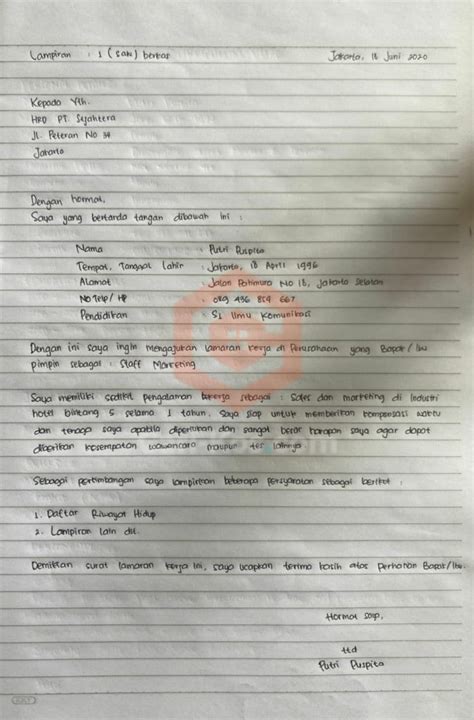 Lampiran : 1 (satu) berkas Jakarta, 18 Juni 2020
Kepada Yth.
HRD PT. Sejahtera
Jl. Peteran No 34
Jakarta
Dengan hormat,
Saya yang bertanda tangan dibawah ini :
Nama : Putri Puspita
Tempat, Tanggal Lahir : Jakarta, 18 April 1996
Alamat : Jalan Patimura No 18, Jakarta Selatan
No Telp / HP : 089 436 859 667
Pendidikan : S1 Ilmu Komunikasi
Dengan ini saya ingin mengajukan lamaran kerja di Perusahaan yang Bapak / Ibu
pimpin sebagai : Staff Marketing
Saya memiliki sedikit pengalaman bekerja sebagai : Sales dan marketing di Industri
hotel bintang 5 selama 1 tahun. Saya siap untuk memberikan kompensasi waktu
dan tenaga saya apabila diperlukan dan sangat besar harapan saya agar dapat
diberikan kesempatan wawancara maupun tes lainnya.
Sebagai pertimbangan saya lampirkan beberapa persyaratan sebagai berikut :
1. Daftar Riwayat Hidup
2. Lampiran lain dll.
Demikian surat lamaran kerja ini, saya ucapkan terima kasih atas perhatian Bapak / Ibu.
Hormat saya,
ttd
Putri Puspita